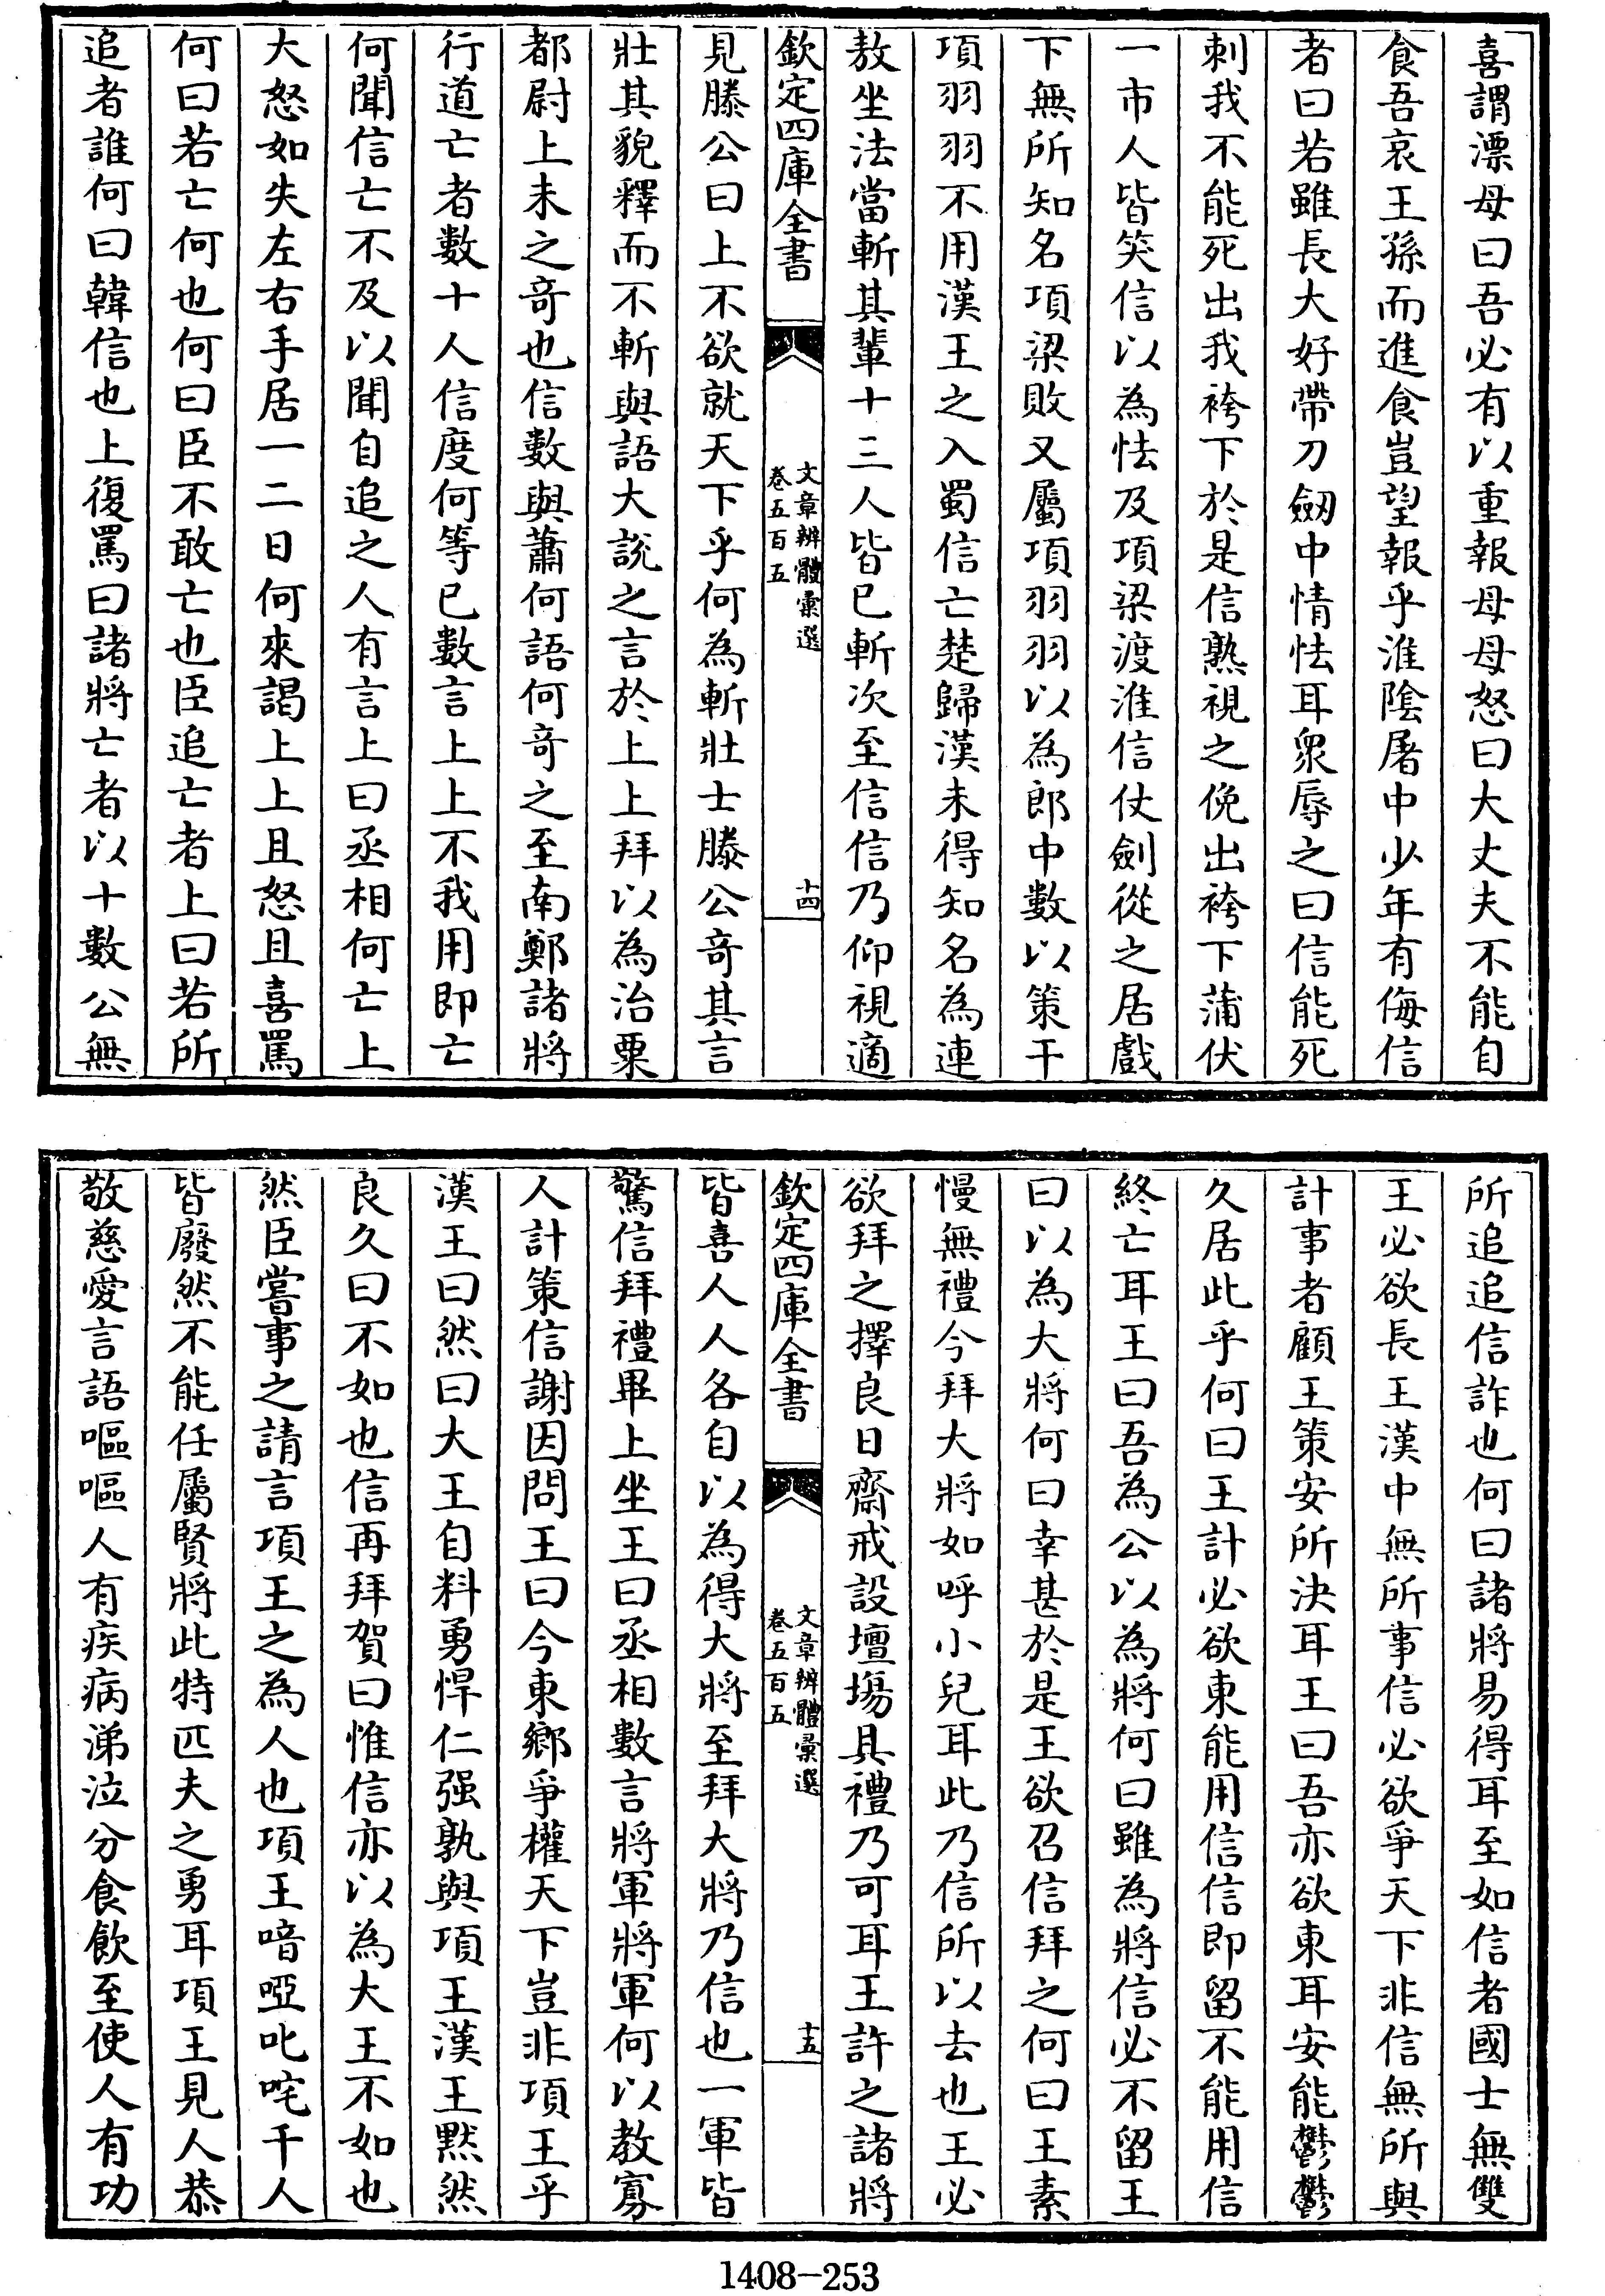 喜謂漂母曰吾必有以重報母母怒曰大丈夫不能自
食吾哀王孫而進食豈望報乎淮陰屠中少年有侮信
者曰若雖長大好帶刀劔中情怯耳衆辱之曰信能死
刺我不能死出我袴下於是信熟視之俛出袴下蒲伏
一市人皆笑信以為怯及項梁渡淮信仗劍從之居戲
下無所知名項梁敗又屬項羽羽以為郎中數以策干
項羽羽不用漢王之入蜀信亡楚歸漢未得知名為連
敖坐法當斬其輩十三人皆已斬次至信信乃仰視適
欽定四庫全書
文章辨體彙選
卷五百五
十四
見滕公曰上不欲就天下乎何為斬壯士滕公奇其言
壯其貌釋而不斬與語大說之言於上上拜以為治粟
都尉上未之奇也信數與蕭何語何奇之至南鄭諸將
行道亡者數十人信度何等已數言上上不我用即亡
何聞信亡不及以聞自追之人有言上曰丞相何亡上
大怒如失左右手居一二日何來謁上上且怒且喜罵
何曰若亡何也何曰臣不敢亡也臣追亡者上曰若所
追者誰何曰韓信也上復罵曰諸將亡者以十數公無
所追追信詐也何曰諸將易得耳至如信者國士無雙
王必欲長王漢中無所事信必欲爭天下非信無所與
計事者顧王策安所決耳王曰吾亦欲東耳安能鬱鬱
久居此乎何曰王計必欲東能用信信即留不能用信
終亡耳王曰吾為公以為將何曰雖為將信必不留王
曰以為大將何曰幸甚於是王欲召信拜之何曰王素
慢無禮今拜大將如呼小兒耳此乃信所以去也王必
欲拜之擇良日齋戒設壇塲具禮乃可耳王許之諸將
欽定四庫全書
文章辨體彙選
卷五百五
十五
皆喜人人各自以為得大將至拜大將乃信也一軍皆
驚信拜禮畢上坐王曰丞相數言將軍將軍何以教寡
人計策信謝因問王曰今東鄉爭權天下豈非項王乎
漢王曰然曰大王自料勇悍仁强孰與項王漢王默然
良久曰不如也信再拜賀曰惟信亦以為大王不如也
然臣嘗事之請言項王之為人也項王喑啞叱咤千人
皆廢然不能任屬賢將此特匹夫之勇耳項王見人恭
敬慈愛言語嘔嘔人有疾病涕泣分食飲至使人有功
1408-253